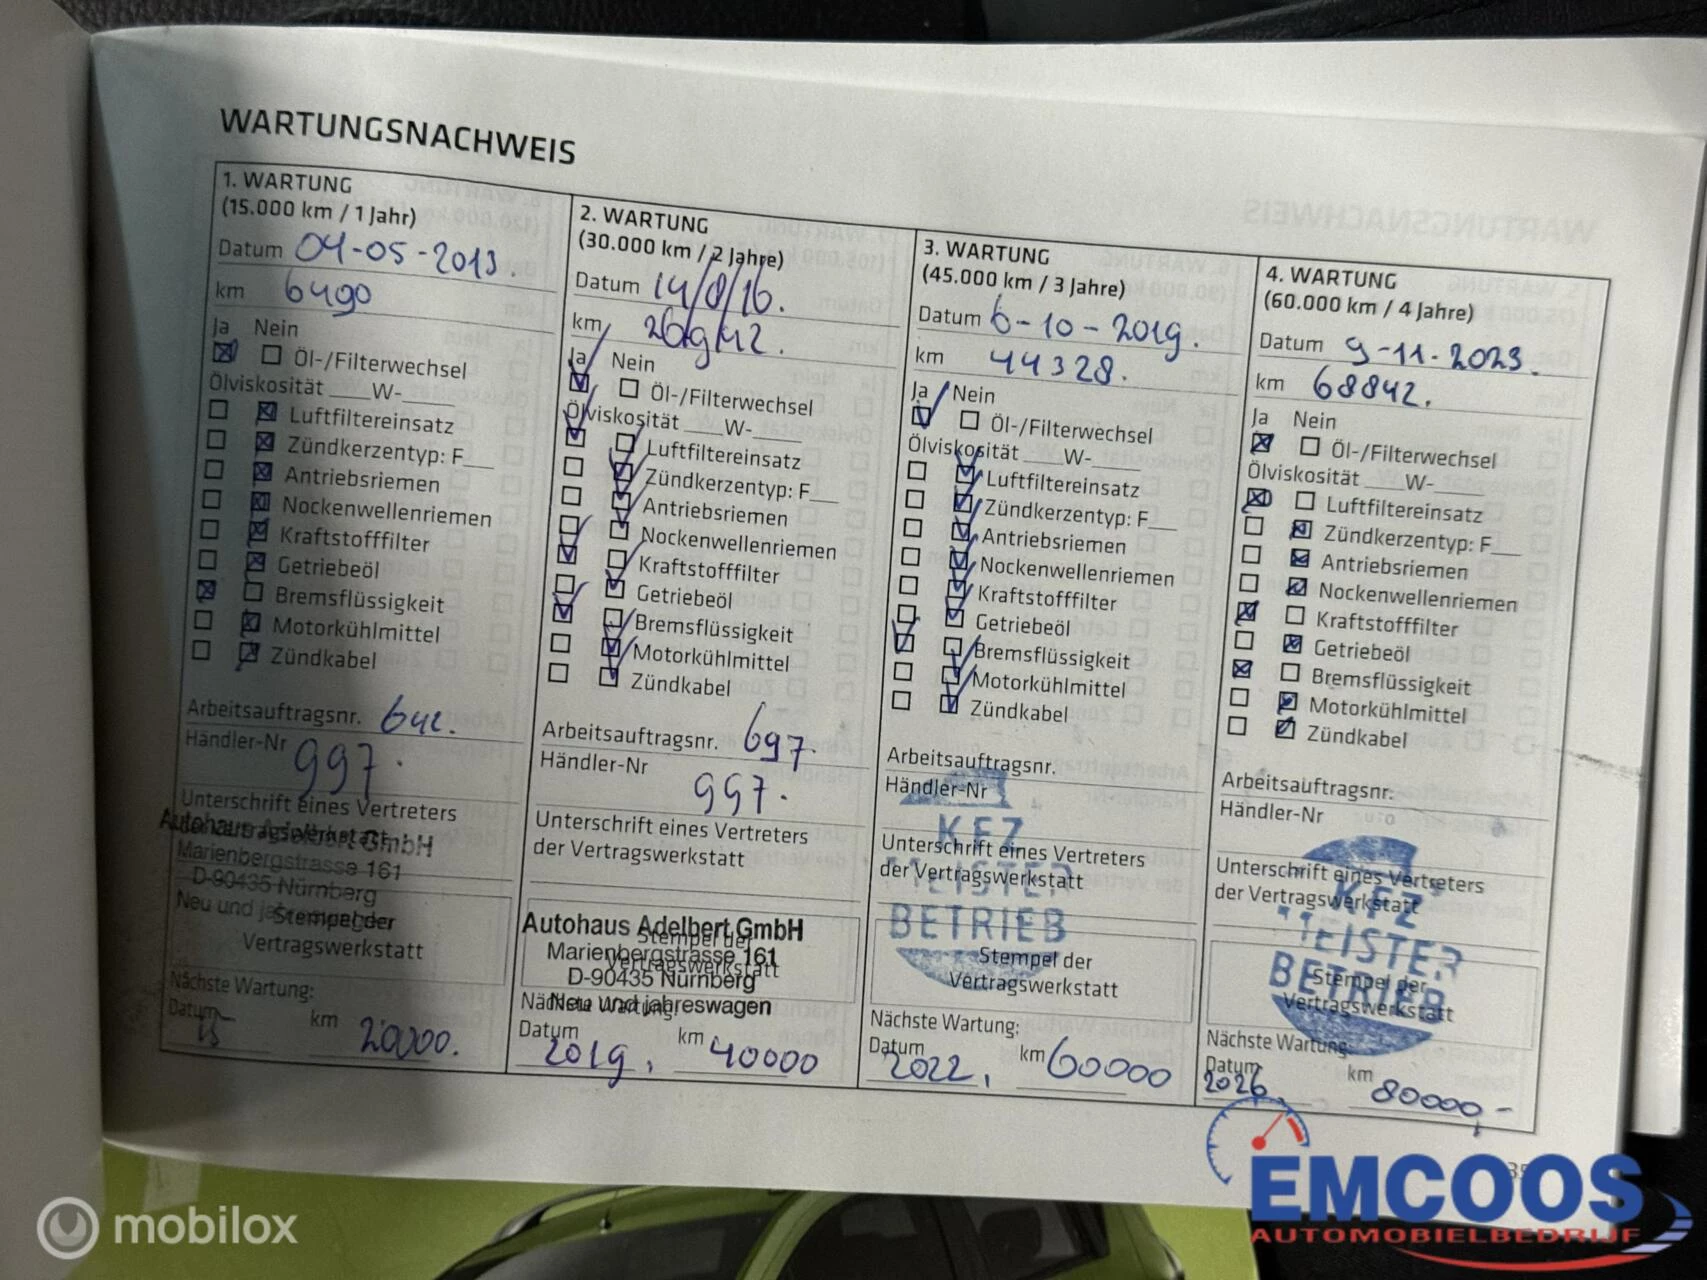 WARTUNGSNACHWEIS
1. WARTUNG
(15.000 km / 1 Jahr)
Datum 04-05-2013.
km 6490
Ja Nein
Öl-/Filterwechsel
Ölviskosität ___W-___
Luftfiltereinsatz
Zündkerzentyp: F___
Antriebsriemen
Nockenwellenriemen
Kraftstofffilter
Getriebeöl
Bremsflüssigkeit
Motorkühlmittel
Zündkabel
Arbeitsauftragsnr. 642.
Händler-Nr 997.
Unterschrift eines Vertreters
der Vertragswerkstatt
Autohaus Adelbert GmbH
Marienbergstrasse 161
D-90435 Nürnberg
Neu und jahreswagen
Stempel der
Vertragswerkstatt
Nächste Wartung:
Datum 15 km 20000.
2. WARTUNG
(30.000 km / 2 Jahre)
Datum 14/8/16.
km 26942.
Ja Nein
Öl-/Filterwechsel
Ölviskosität ___W-___
Luftfiltereinsatz
Zündkerzentyp: F___
Antriebsriemen
Nockenwellenriemen
Kraftstofffilter
Getriebeöl
Bremsflüssigkeit
Motorkühlmittel
Zündkabel
Arbeitsauftragsnr. 697.
Händler-Nr 997.
Unterschrift eines Vertreters
der Vertragswerkstatt
Autohaus Adelbert GmbH
Stempel der
Marienbergstrasse 161
Vertragswerkstatt
D-90435 Nürnberg
Neu und jahreswagen
Nächste Wartung:
Datum 2019. km 40000
3. WARTUNG
(45.000 km / 3 Jahre)
Datum 6-10-2019.
km 44328.
Ja Nein
Öl-/Filterwechsel
Ölviskosität ___W-___
Luftfiltereinsatz
Zündkerzentyp: F___
Antriebsriemen
Nockenwellenriemen
Kraftstofffilter
Getriebeöl
Bremsflüssigkeit
Motorkühlmittel
Zündkabel
Arbeitsauftragsnr.
Händler-Nr
KFZ
Unterschrift eines Vertreters
der Vertragswerkstatt
MEISTER
BETRIEB
Stempel der
Vertragswerkstatt
Nächste Wartung:
Datum 2022. km 60000
4. WARTUNG
(60.000 km / 4 Jahre)
Datum 9-11-2023.
km 68842.
Ja Nein
Öl-/Filterwechsel
Ölviskosität ___W-___
Luftfiltereinsatz
Zündkerzentyp: F___
Antriebsriemen
Nockenwellenriemen
Kraftstofffilter
Getriebeöl
Bremsflüssigkeit
Motorkühlmittel
Zündkabel
Arbeitsauftragsnr.
Händler-Nr
Unterschrift eines Vertreters
der Vertragswerkstatt
KFZ
MEISTER
BETRIEB
Stempel der
Vertragswerkstatt
Nächste Wartung:
Datum 2026. km 80000-
35
EMCOOS
AUTOMOBIELBEDRIJF
mobilox